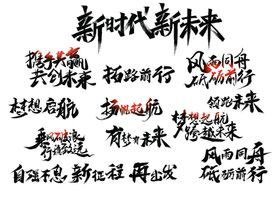 新时代新未来
携手共赢
共创未来
拓路前行
风雨同舟
砥砺前行
梦想启航
扬帆起航
领路未来
乘风破浪
行稳致远
有梦有未来
梦想起航
跨越未来
自强不息
新征程
再出发
风雨同舟
砥砺前行